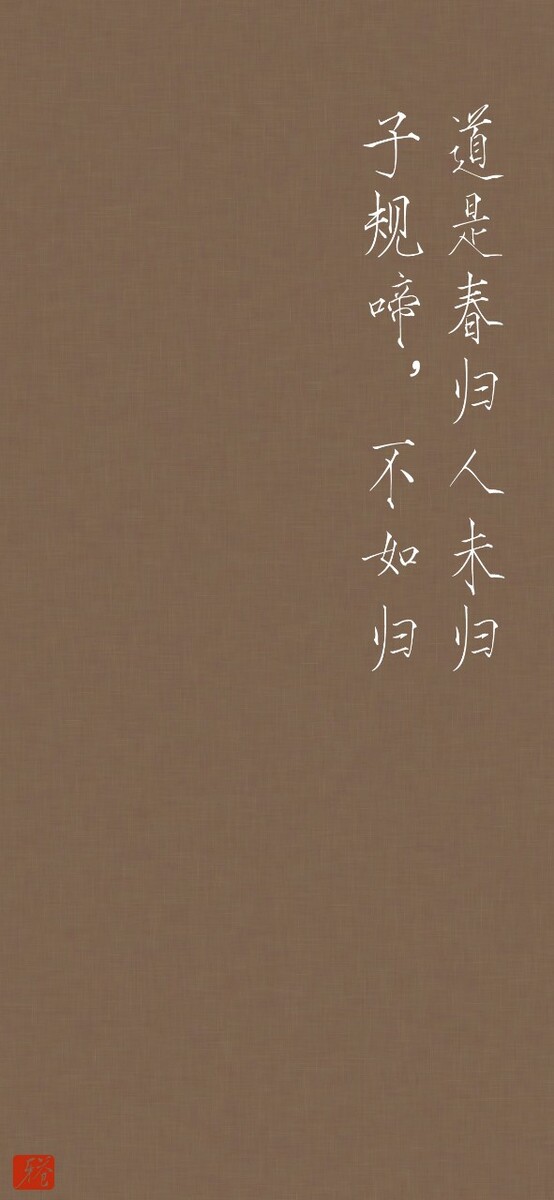 道是春归人未归
子规啼，不如归